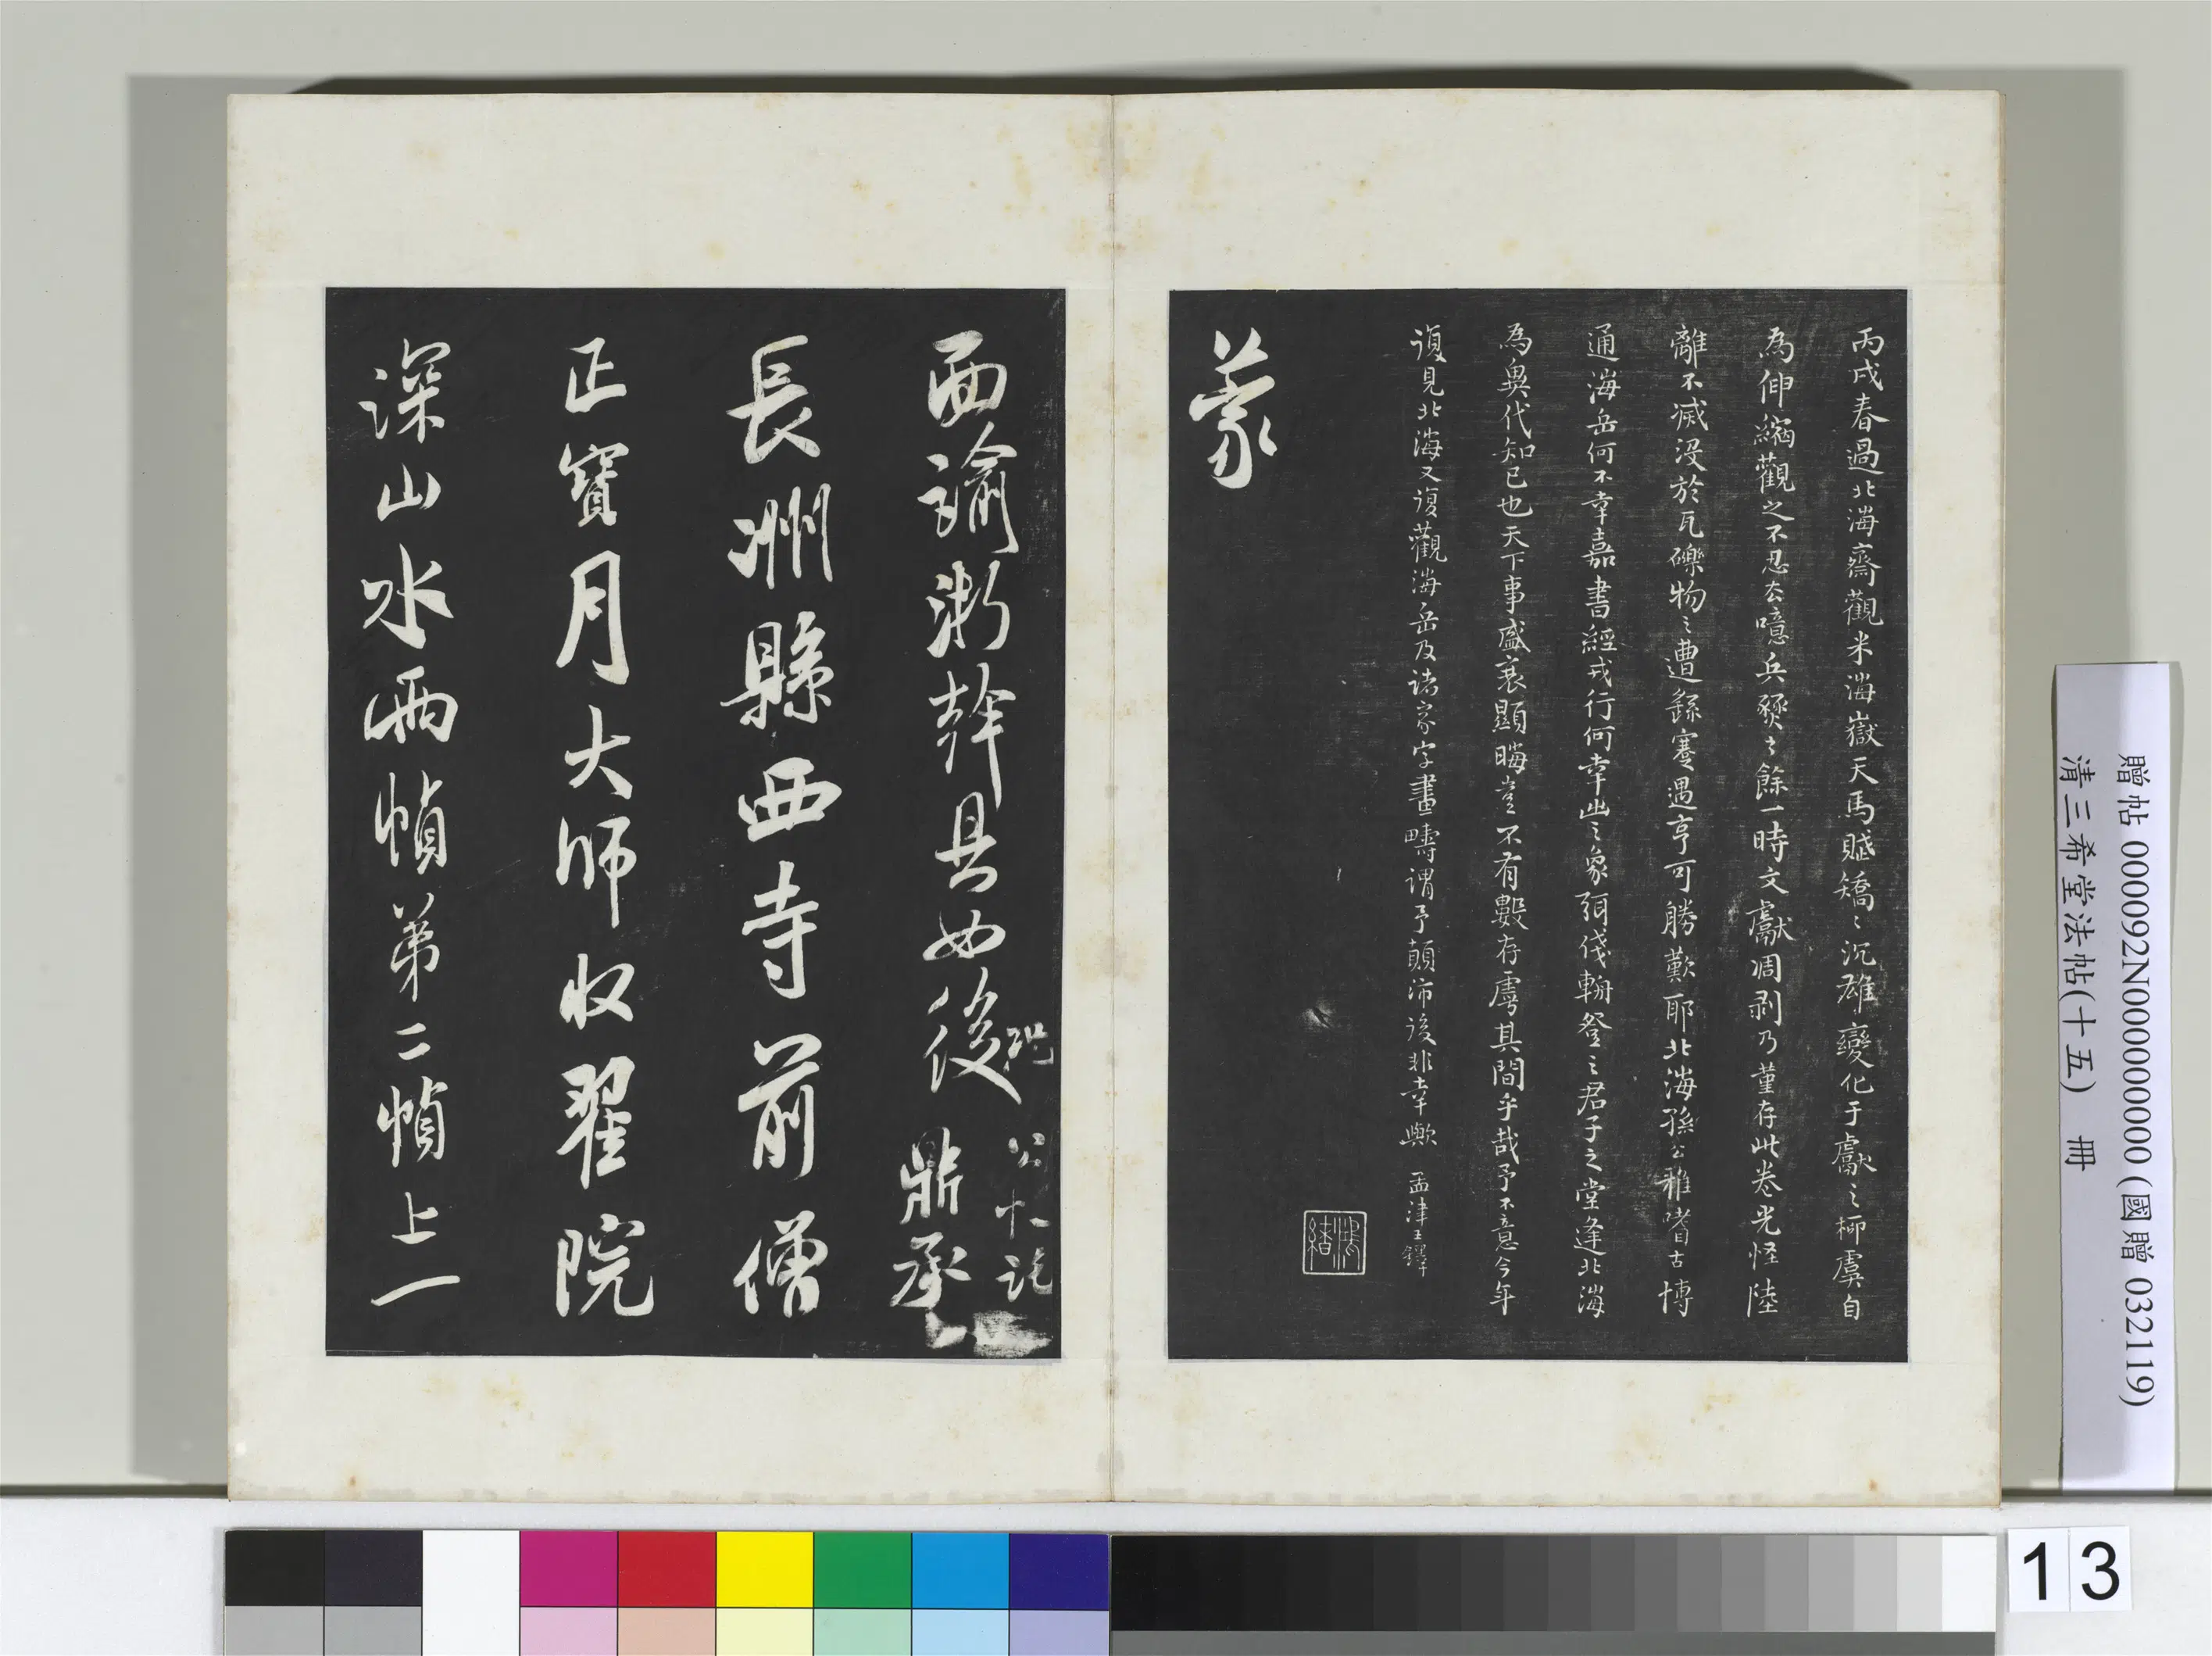 丙戌春過北海齋觀米海嶽天馬賦矯〻沉雄變化于獻之柳虞自
為伸縮觀之不忍去噫兵燹之餘一時文獻凋剥乃堇存此卷光怪陸
離不滅沒於瓦礫物〻遭蹇遇亨可勝歎耶北海孫公雅嗜古博
通海岳何不幸嘉書經戎行何幸出〻象弭俴輈登〻君子之堂逢北海
為異代知己也天下事盛衰顯晦豈不有數存虖其間乎哉予不意今年
復見北海又復觀海岳及諸家字畫疇謂予顛沛後非幸歟 孟津王鐸
蒙
面諭淛幹具如後
批
公
鼎承
長洲縣西寺前僧
正寶月大師收翟院
深山水兩幀第二幀上一
贈帖 000092N000000000 (國贈 032119)
清三希堂法帖(十五) 冊
13